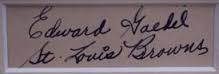 Edward Gaedel
St. Louis Browns